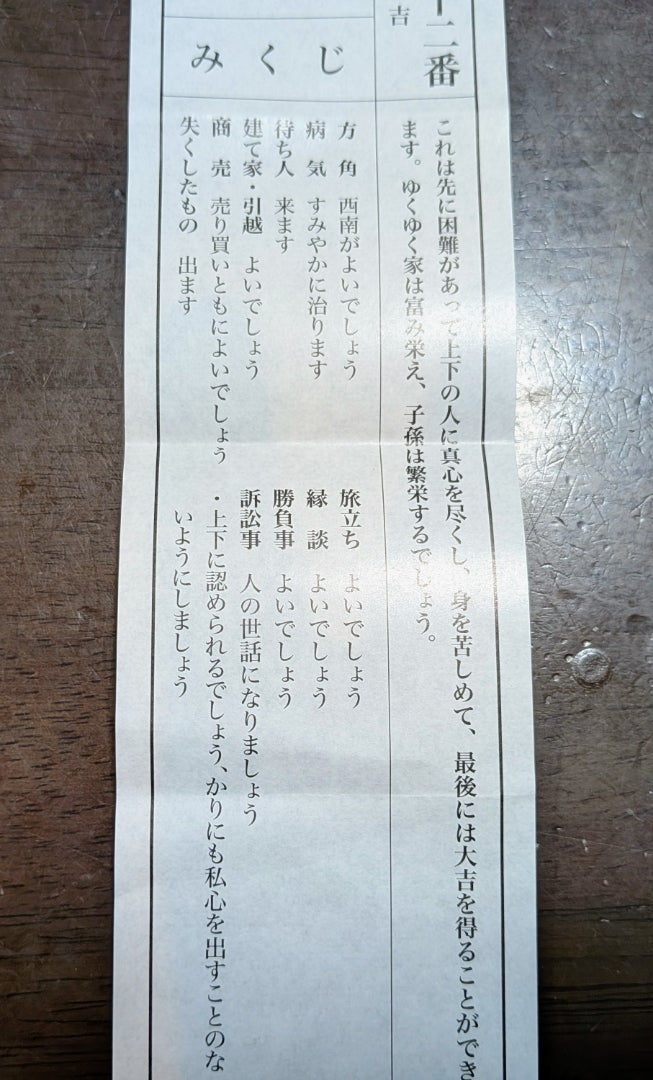 十二番
吉
これは先に困難があって上下の人に真心を尽くし、身を苦しめて、最後には大吉を得ることができ
ます。ゆくゆく家は富み栄え、子孫は繁栄するでしょう。
みくじ
方角 西南がよいでしょう
病気 すみやかに治ります
待ち人 来ます
建て家・引越 よいでしょう
商売 売り買いともによいでしょう
失くしたもの 出ます
旅立ち よいでしょう
縁談 よいでしょう
勝負事 よいでしょう
訴訟事 人の世話になりましょう
・上下に認められるでしょう、かりにも私心を出すことのな
いようにしましょう